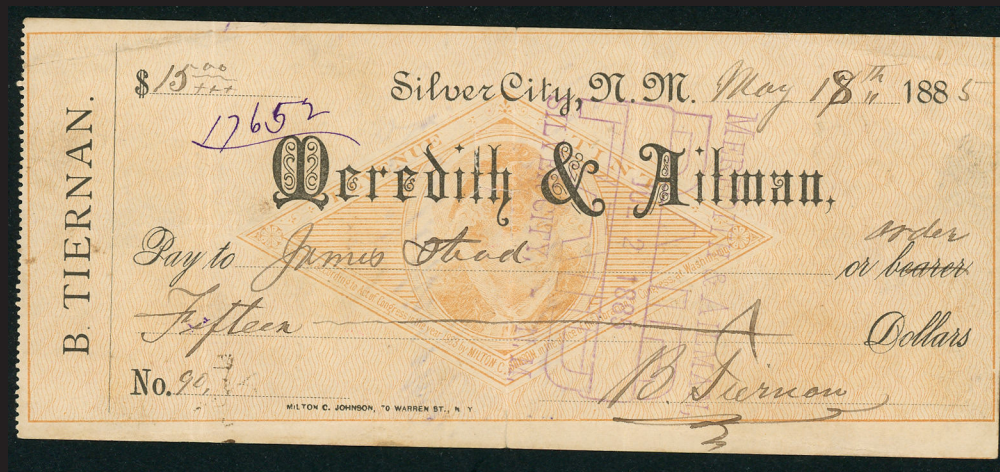 B. TIERNAN.
$ 15.00
Silver City, N. M. May 18th 1885
17652
Meredith & Ailman,
Pay to James Stead or bearer
order
Fifteen Dollars
No. 90,
B. Tiernan
MILTON C. JOHNSON, 70 WARREN ST., N. Y